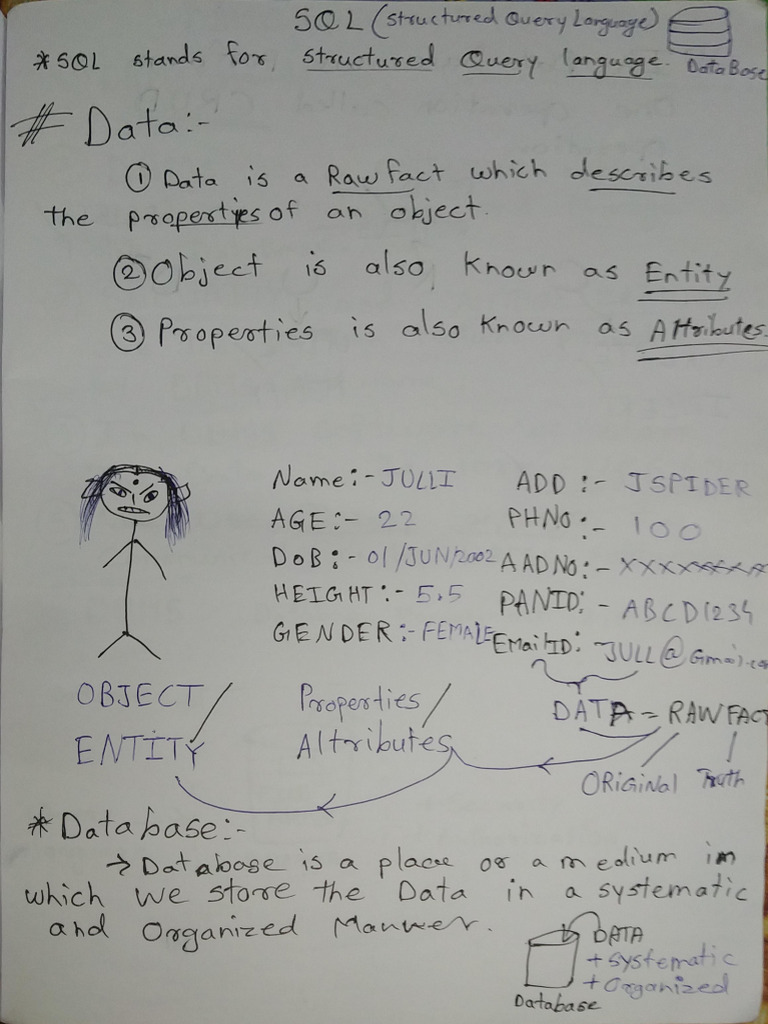 SQL (Structured Query Language)
* SQL stands for structured Query language.
DataBase
# Data:-
① Data is a Raw fact which describes
the properties of an object.
② Object is also known as Entity
③ Properties is also known as Attributes.
Name:- JULLI
AGE:- 22
DOB:- 01/JUN/2002
HEIGHT:- 5.5
GENDER:- FEMALE
ADD:- JSPIDER
PHNO:- 100
AADNO:- XXXXXXXXX
PANID:- ABCD1234
EmailID: JULL@Gmail.com
OBJECT /
ENTITY
Properties /
Attributes
DATA = RAWFACT
ORiGiNal Truth
* Database:-
→ Database is a place or a medium in
which we store the Data in a systematic
and Organized Manner.
DATA
+ Systematic
+ Organized
Database